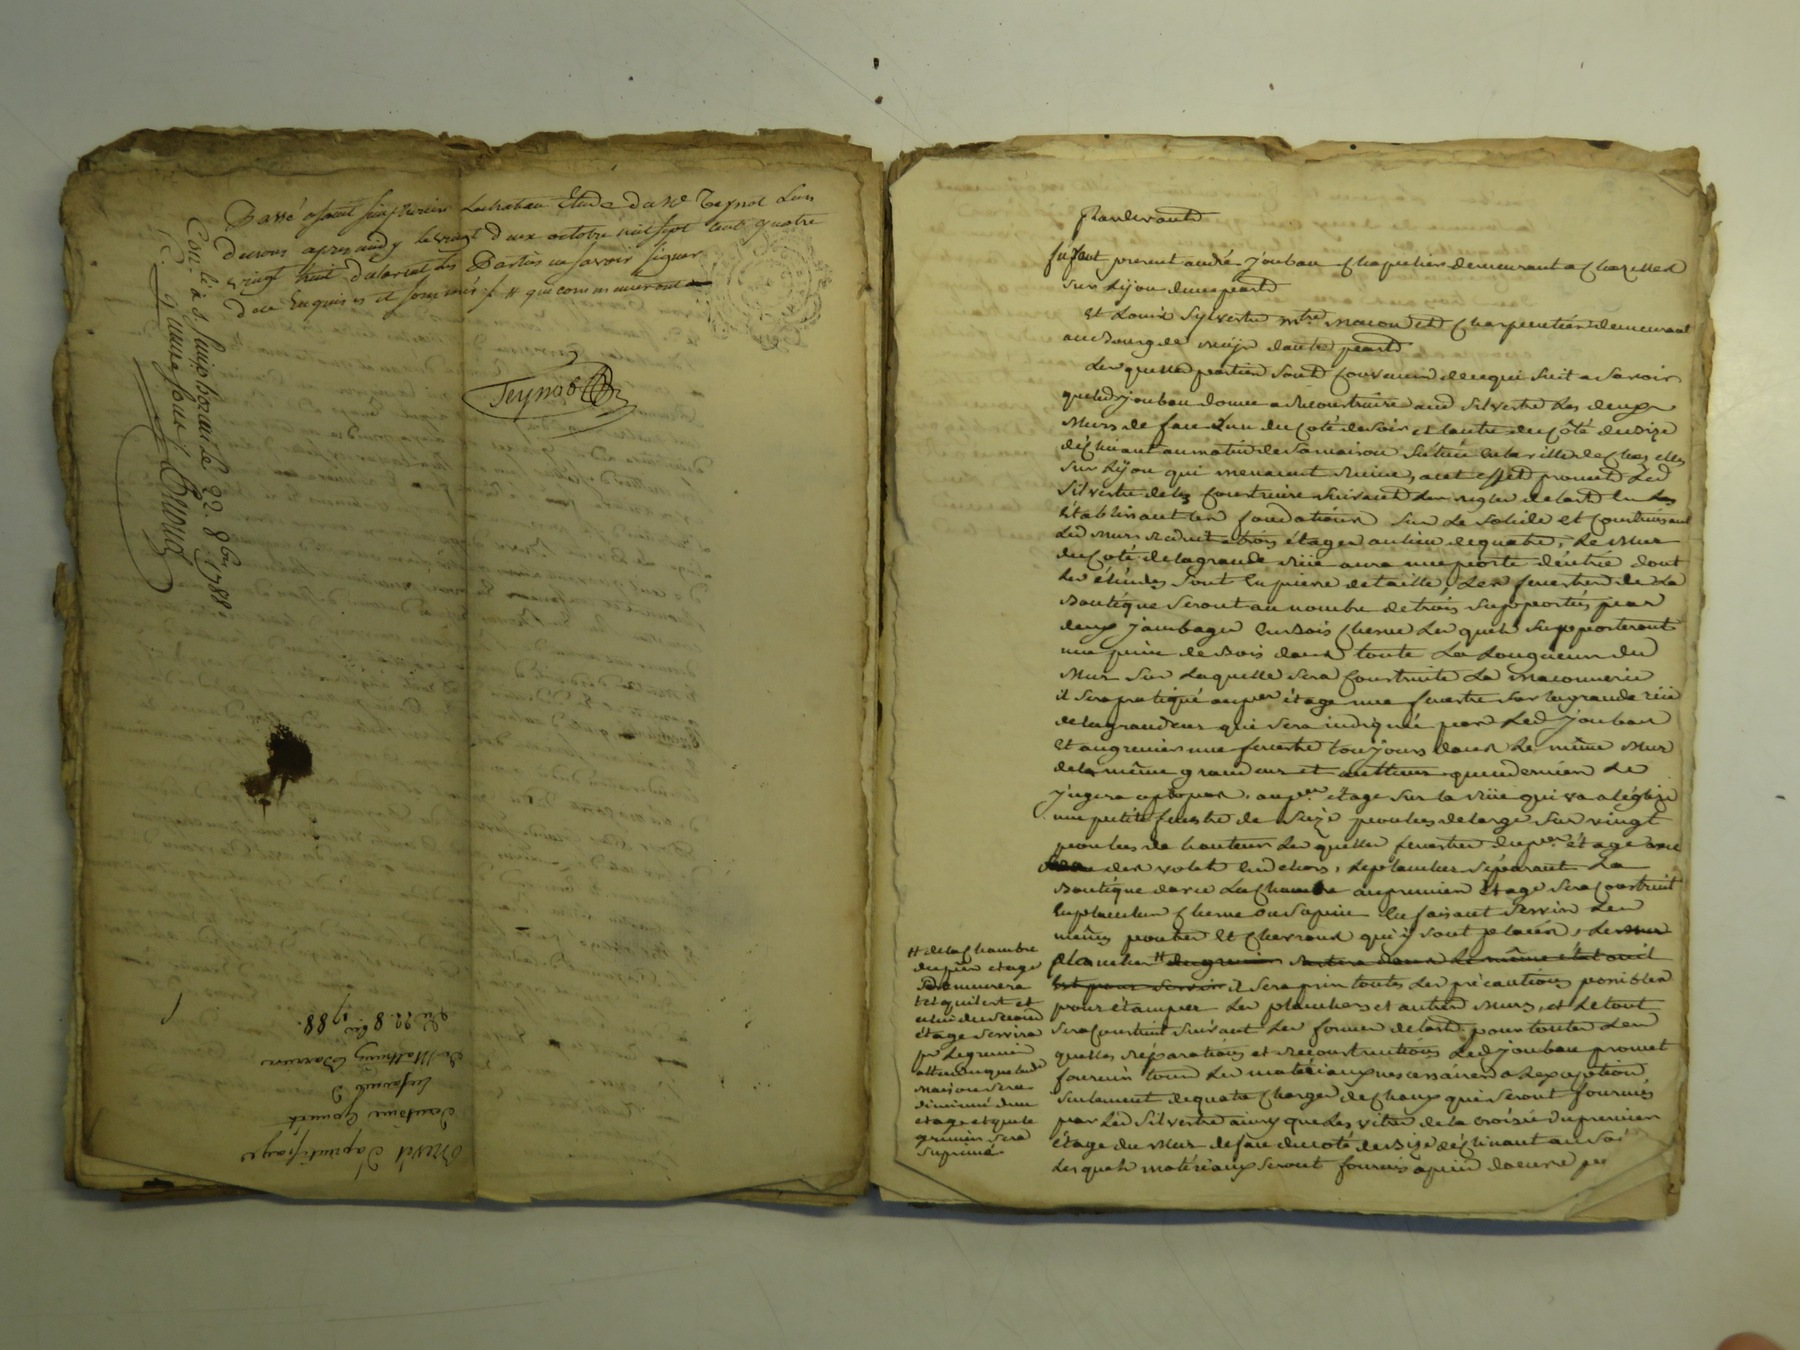 Passé a Saint simphorien Lechateau Etude de Me Teynod L'un
de nous apres midy le vingt deux octobre mil sept cent quatre
vingt huit Delaroat des Parties ne savoir signer
de ce Enquis et sommés /. # que commenceront
Teynod
Con.lé à s. simphorien le 22. 8bre 1788.
R. quinze sous /.
Brevet d'aprentissage
d'antoine
de Mathieu
du 22. 8bre 1788.
Pardevant
fut present andré joubau Chapelier demeurant a Chazelles
sur Lyon dune part
et Louis Sylvestre mtre macon et Charpentier demeurant
au Bourg de dautre part
Les quelles parties sont convenu de ce qui suit a savoir
que led joubau donne a reconstruire aud Silvestre Les deux
Murs de face L'un du coté de soir et lautre du côté de bize
déclinant au matin de sa maison Située en la ville de Chazelles
sur Lyon qui menacent ruine, a cet effet promet Led
Silvestre de les construire suivant Les regles de lart en Les
Etablissant les fondations sur Le solide et construisant
Led murs a trois étages au lieu de quatre, Le Mur
du Coté de la grande rüe aura une porte déntrée dont
Les sont en pierre de taille, Les fenestres de La
Boutique seront au nombre de trois supportés par
deux jambages en Bois Chesne Les quels supporteront
une piece de Bois dans toute La Longueur du
Mur sur Laquelle sera construite La maconnerie
il sera pratiqué au per étage une fenestre sur la grande rüe
de la grandeur qui sera indiqué par Led joubau
et au grenier une fenestre toujours dans Le même Mur
de la même grandeur et que dernier Le
jugera apropos. au per étage sur la rüe qui va a léglize
une petite fenestre de seize pouces de large sur vingt
pouces de hauteur Les quelles fenestres du per étage
des volet en dehors, Le plancher séparant La
Boutique davec La Chambre au premier étage sera construit
en plancher Chesne ou sapin en faisant servir Les
mêmes poutres et Chevrons qui y sont placés, Le Mur
plancher # du grenier restera dans Le même état ou il
est pour servir il sera pris toutes Les précautions possibles
pour étamper Les planchers et autres Murs, et Le tout
sera construit suivant Les formes de lart. pour toutes Les
quelles réparations et reconstructions Led joubau promet
fournir tous Les matériaux necessaires a Lexception
seulement de quatre Charges de Chaux qui seront fournies
par Led Silvestre ainsy que Les vitres de la croisée du premier
étage du Mur de face du coté de Bize déclinant au soir
Les quels matériaux seront fournis a pied dœuvre
# de la Chambre
du pier étage
demeurera
tel quil est et
celui du second
étage servira
pr Le grenier
attendu que lade
Maison sera
diminué d'un
étage et que le
grenier sera
suprimé